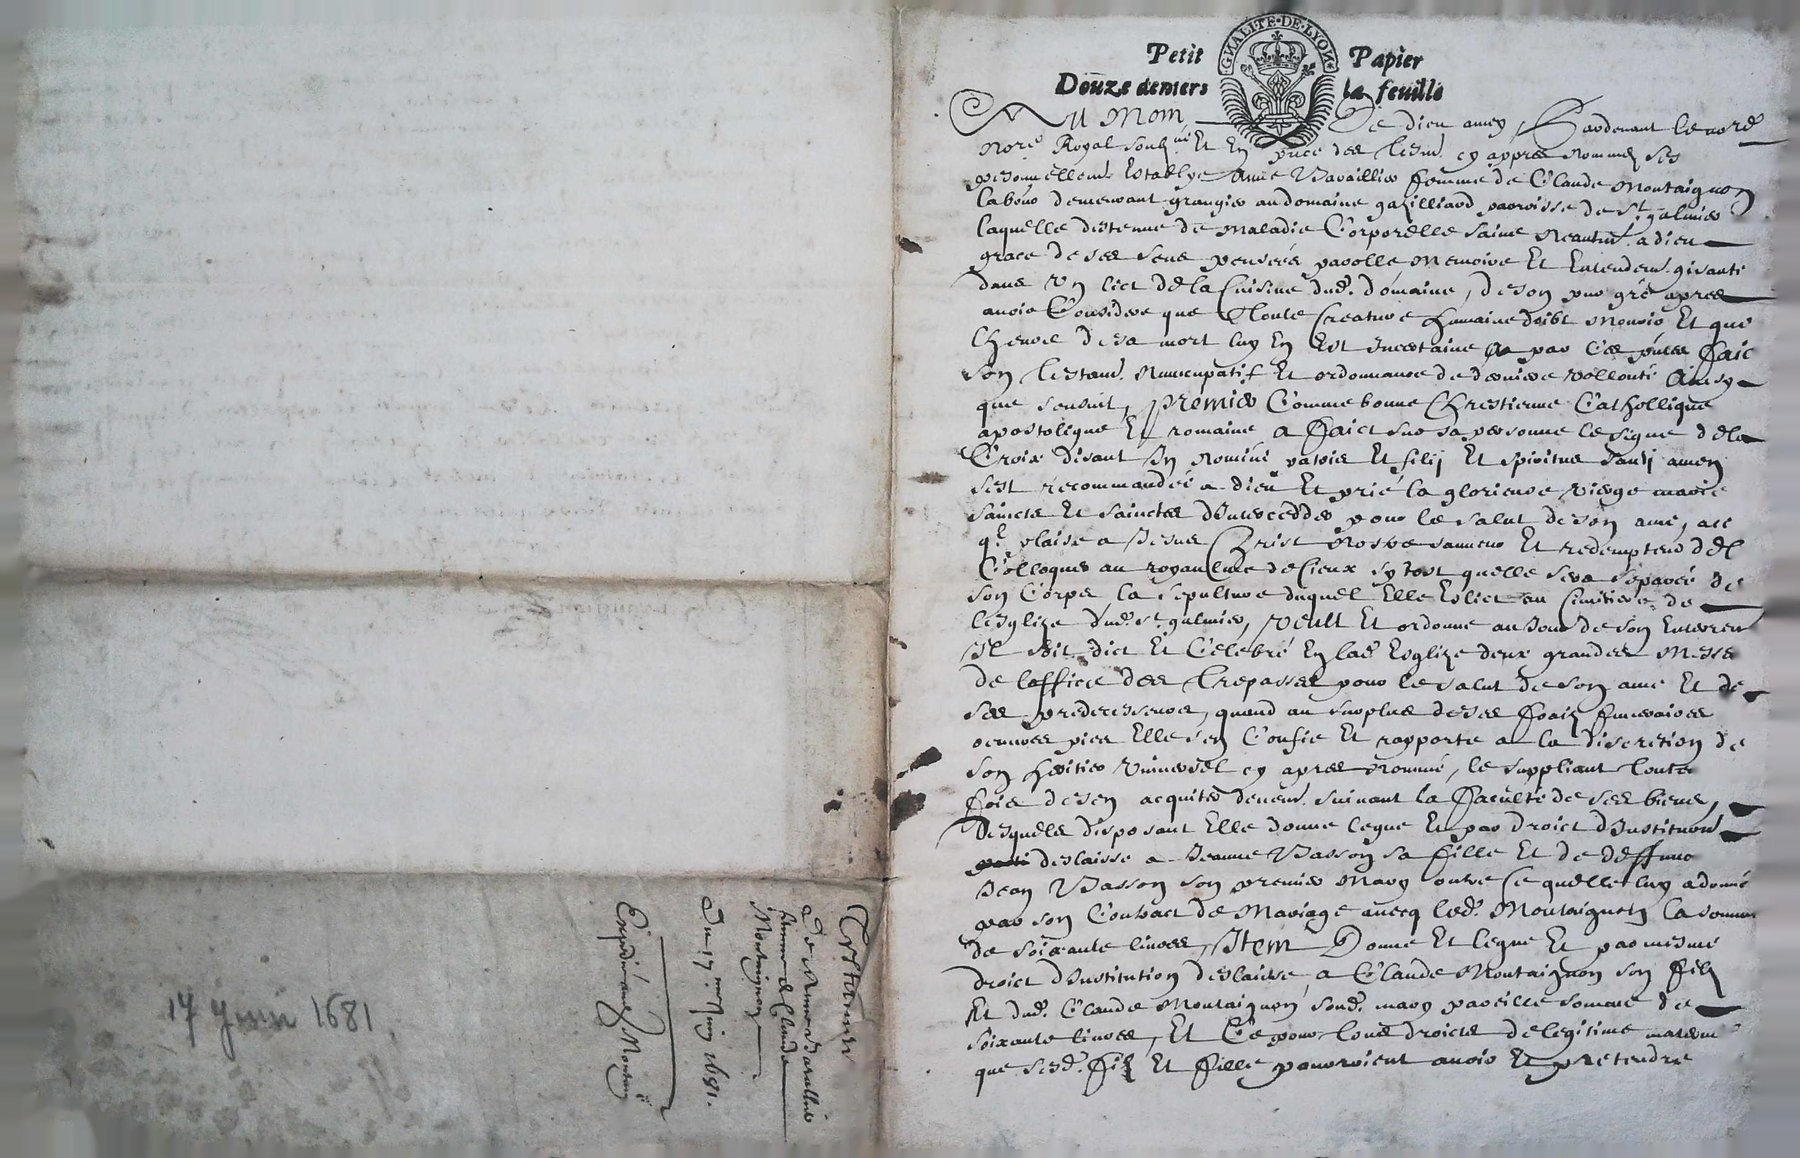 GNALITE·DE·LYON
Petit Papier
Douze deniers la feuille
Au Nom de dieu amen, Pardevant le nore
Nore Royal soubzne Et En pnce des tesm. cy appres Nommez ses
personnellemt. Establye Anne Varaillier femme de Claude Montaignon
labour demeurant grangier au domaine paroisse de St galmier
laquelle destenue de maladie Corporelle saine neantmt. a dieu
grace de ses sens pensées parolle memoire Et Entendemt. gisante
dans Un lict de la Cuisine dud. domaine, de son pur gré apres
avoir Consideré que Toute Creature humaine doibt Mourir Et que
lheure de sa mort luy En Est Incertaine par Ces pntes faict
son testamt. Nuncupatif Et ordonnance de derniere vollonté Ainsy
que sensuit, premier Comme bonne Chrestienne Cathollique
apostolique Et romaine a faict sur sa personne le signe de la
Croix disant In Nomine patris Et filij Et spiritus santi amen
sest recommandée a dieu Et prié la glorieuse vierge marie
saincts Et sainctes dInterceder pour le salut de son ame, ace
ql plaise a Jesus Christ Nostre sauveur Et redempteur de
Colloquer au royaulme de Cieux sy tost quelle sera séparée de
son Corps la sepulture duquel Elle Eslict au Cimitiere de
lesglize dud. St. galmier, veult Et ordonne au Jour de son Enterremt
Il soit dict Et Celebré En lad. Esglize deux grandes Messes
de loffice des trepasses pour le salut de son ame Et de
ses predecesseurs, quand au surplus de ses fraiz funeraires
oeuvres pies Elle sen Confie Et rapporte a la discretion de
son heritier Universel cy apres Nommé, le suppliant toute
fois desen acquiter suivant la faculté de ses biens,
Desquels disposant Elle donne legue Et par droict dInstitution
deslaisse a Jeanne Vasson sa fille Et de deffunc
Jean Vasson son premier Mary outre Ce quelle luy a donné
par son Contract de Mariage avecq led. Montaignon la somme
de soixante livres, Item Donne Et legue Et par mesme
droict dInstitution deslaisse a Claude Montaignon son filz
Et dud. Claude Montaignon sond. mary pareille somme de
soixante livres, Et Ce pour tous droicts de legitime
que sesd. filz Et fille pourroient avoir Et pretendre
Testament
De Anne Varallier
femme de Claude
Montaignon
Du 17me Juin 1681.
Expedié aud. Montaig
17 juin 1681